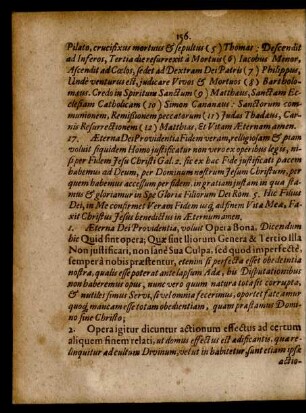 156.
Pilato, crucifixus mortuus & sepultus (5) Thomas: Descendit
ad Inferos, Tertia die resurrexit à Mortuis (6) Iacobus Menor,
Ascendit ad Cœlos, sedet ad Dextram Dei Patris (7) Philippus,
Unde venturus est, judicare Vivos & Mortuos (8) Bartholo-
mæus. Credo in Spiritum Sanctum (9) Matthæus, Sanctam Ec-
clesiam Catholicam (10) Simon Cananæus: Sanctorum com-
munionem, Remissionem peccatorum (11) Judas Thadæus, Car-
nis Resurrectionem (12) Matthias, Et Vitam Æternam amen.
27. Æterna Dei Providentia Fidem veram, religiosam & piam
voluit siquidem Homo justificatur non vero ex operibus legis, ni-
si per Fidem Jesu Christi Gal. 2. sic ex hac Fide justificati pacem
habemus ad Deum, per Dominum nostrum Jesum Christum, per
quem habemus accessum per fidem in gratiam istam in qua sta-
mus & gloriamur in Spe Gloria Filiorum Dei Rom. 5. Hic Filius
Dei, in Me confirmet Veram Fidem usq; ad finem Vita Mea, Fa-
xit Christus Jesus benedictus in Æternum amen.
1. Æterna Dei Providentia, voluit Opera Bona. Dicendum
hic Quid sint opera; Quæ sint Illorum Genera & Tertio Illa
Non justificari, non sanè Sua Culpa, sed quod imperfectè,
semper à nobis præstentur, etenim si perfecta esset obedientia
nostra, qualis esse poterat ante lapsum Adæ, his Disputationibus
non haberemus opus, nunc vero quum natura tota sit corrupta,
& nutiles simus Servi, si vel omnia fecerimus, oportet fateamur
quod manca esse totam obedientiam, quam præstamus Domi-
no sine Christo;
2. Opera igitur dicuntur actionum effectus ad certum
aliquem finem relati, ut domus effectus est ædificantis, quæ re-
linquitur ad cultum Divinum, velut in habitetur, sunt etiam ipsæ
actio-